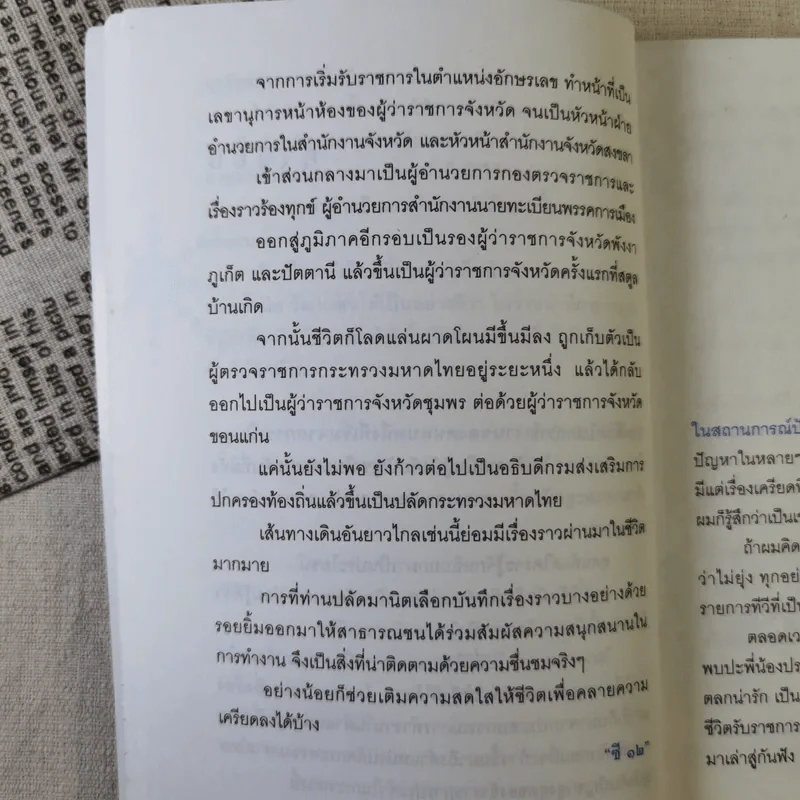 จากการเริ่มรับราชการในตำแหน่งอักษรเลข ทำหน้าที่เป็น
เลขานุการหน้าห้องของผู้ว่าราชการจังหวัด จนเป็นหัวหน้าฝ่าย
อำนวยการในสำนักงานจังหวัด และหัวหน้าสำนักงานจังหวัดสงขลา
เข้าส่วนกลางมาเป็นผู้อำนวยการกองตรวจราชการและ
เรื่องราวร้องทุกข์ ผู้อำนวยการสำนักงานนายทะเบียนพรรคการเมือง
ออกสู่ภูมิภาคอีกรอบเป็นรองผู้ว่าราชการจังหวัดพังงา
ภูเก็ต และปัตตานี แล้วขึ้นเป็นผู้ว่าราชการจังหวัดครั้งแรกที่สตูล
บ้านเกิด
จากนั้นชีวิตก็โลดแล่นผาดโผนมีขึ้นมีลง ถูกเก็บตัวเป็น
ผู้ตรวจราชการกระทรวงมหาดไทยอยู่ระยะหนึ่ง แล้วได้กลับ
ออกไปเป็นผู้ว่าราชการจังหวัดชุมพร ต่อด้วยผู้ว่าราชการจังหวัด
ขอนแก่น
แค่นั้นยังไม่พอ ยังก้าวต่อไปเป็นอธิบดีกรมส่งเสริมการ
ปกครองท้องถิ่นแล้วขึ้นเป็นปลัดกระทรวงมหาดไทย
เส้นทางเดินอันยาวไกลเช่นนี้ย่อมมีเรื่องราวผ่านมาในชีวิต
มากมาย
การที่ท่านปลัดมานิตเลือกบันทึกเรื่องราวบางอย่างด้วย
รอยยิ้มออกมาให้สาธารณชนได้ร่วมสัมผัสความสนุกสนานใน
การทำงาน จึงเป็นสิ่งที่น่าติดตามด้วยความชื่นชมจริงๆ
อย่างน้อยก็ช่วยเติมความสดใสให้ชีวิตเพื่อคลายความ
เครียดลงได้บ้าง
"ซี ๑๒"
ในสถานการณ์
ปัญหาในหลายๆ
มีแต่เรื่องเครียด
ผมก็รู้สึกว่าเป็น
ถ้าผมคิด
ว่าไม่ยุ่ง ทุกอย่
รายการทีวีที่เป็
ตลอดเว
พบปะพี่น้องปร
ตลกน่ารัก เป็น
ชีวิตรับราชการ
มาเล่าสู่กันฟัง